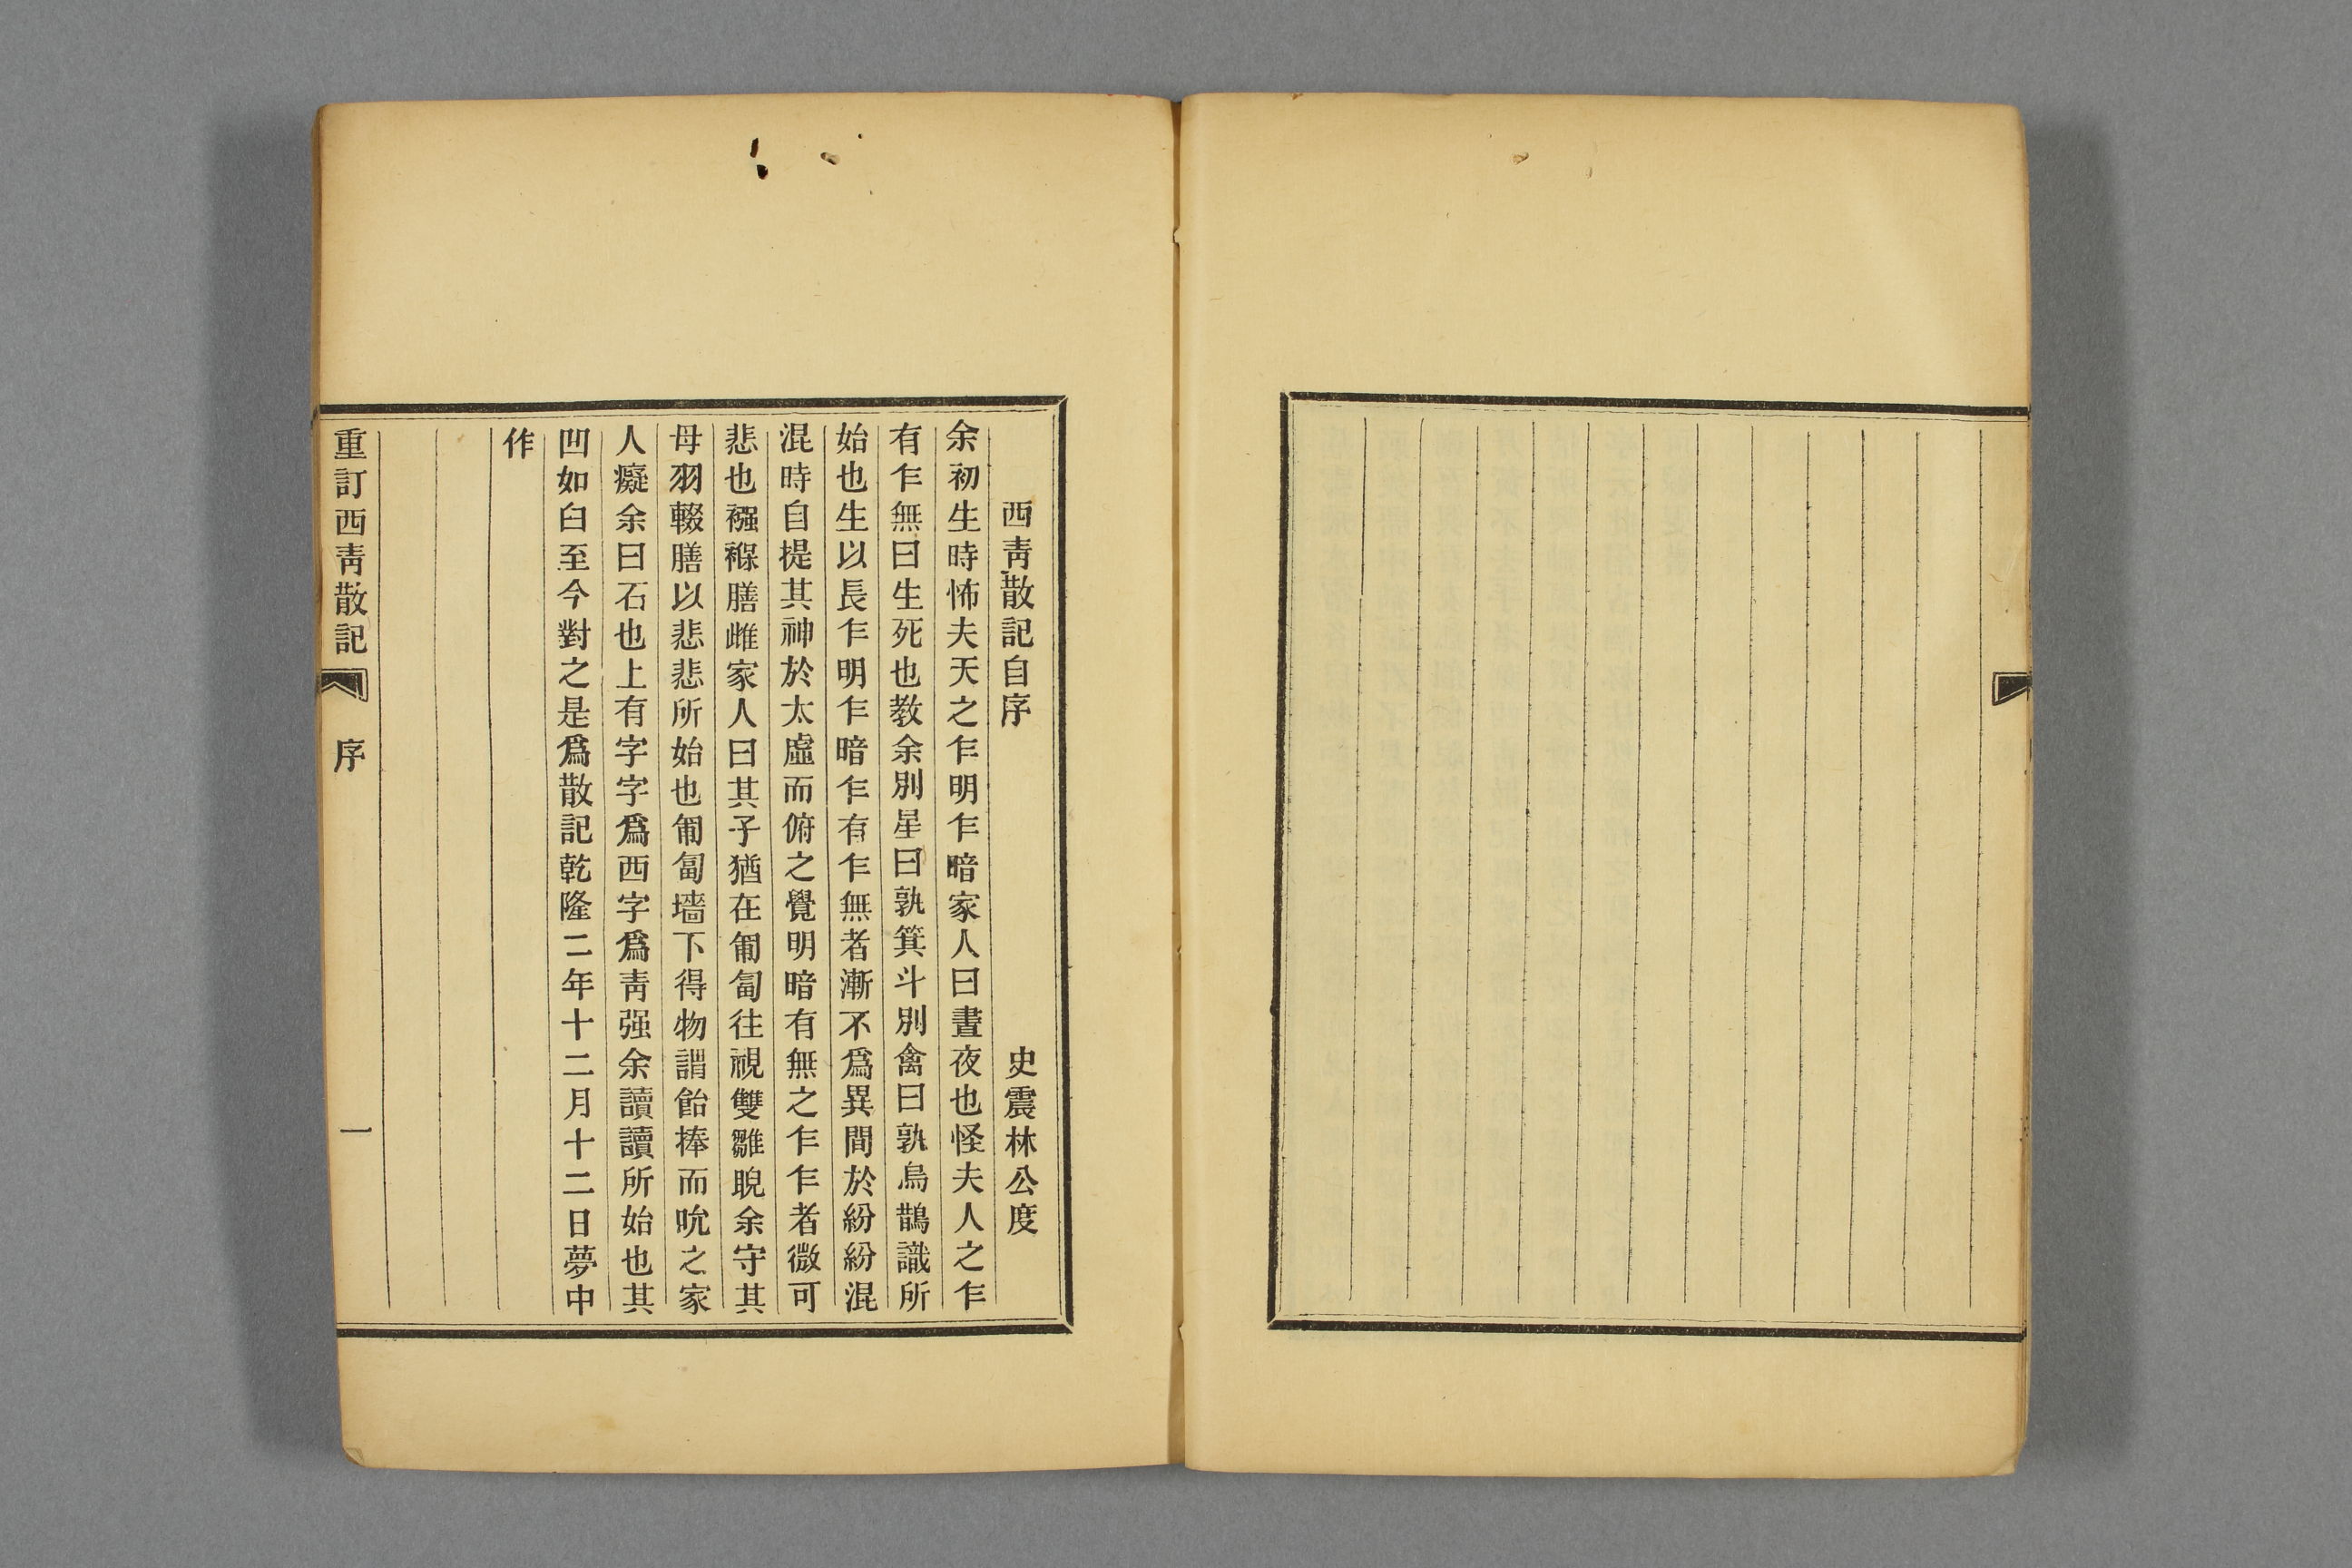 西靑散記自序 史震林公度
余初生時怖夫天之乍明乍暗家人曰晝夜也怪夫人之乍
有乍無曰生死也教余別星曰孰箕斗別禽曰孰烏鵲識所
始也生以長乍明乍暗乍有乍無者漸不爲異間於紛紛混
混時自提其神於太虛而俯之覺明暗有無之乍乍者微可
悲也襁褓膳雌家人曰其子猶在匍匐往視雙雛睨余守其
母羽輟膳以悲悲所始也匍匐墻下得物謂飴捧而吮之家
人癡余曰石也上有字字爲西字爲靑强余讀讀所始也其
凹如臼至今對之是爲散記乾隆二年十二月十二日夢中
作
重訂西靑散記 序 一